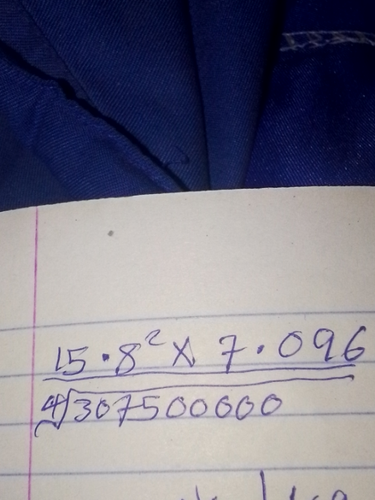 15.8² × 7.096
∜307500000